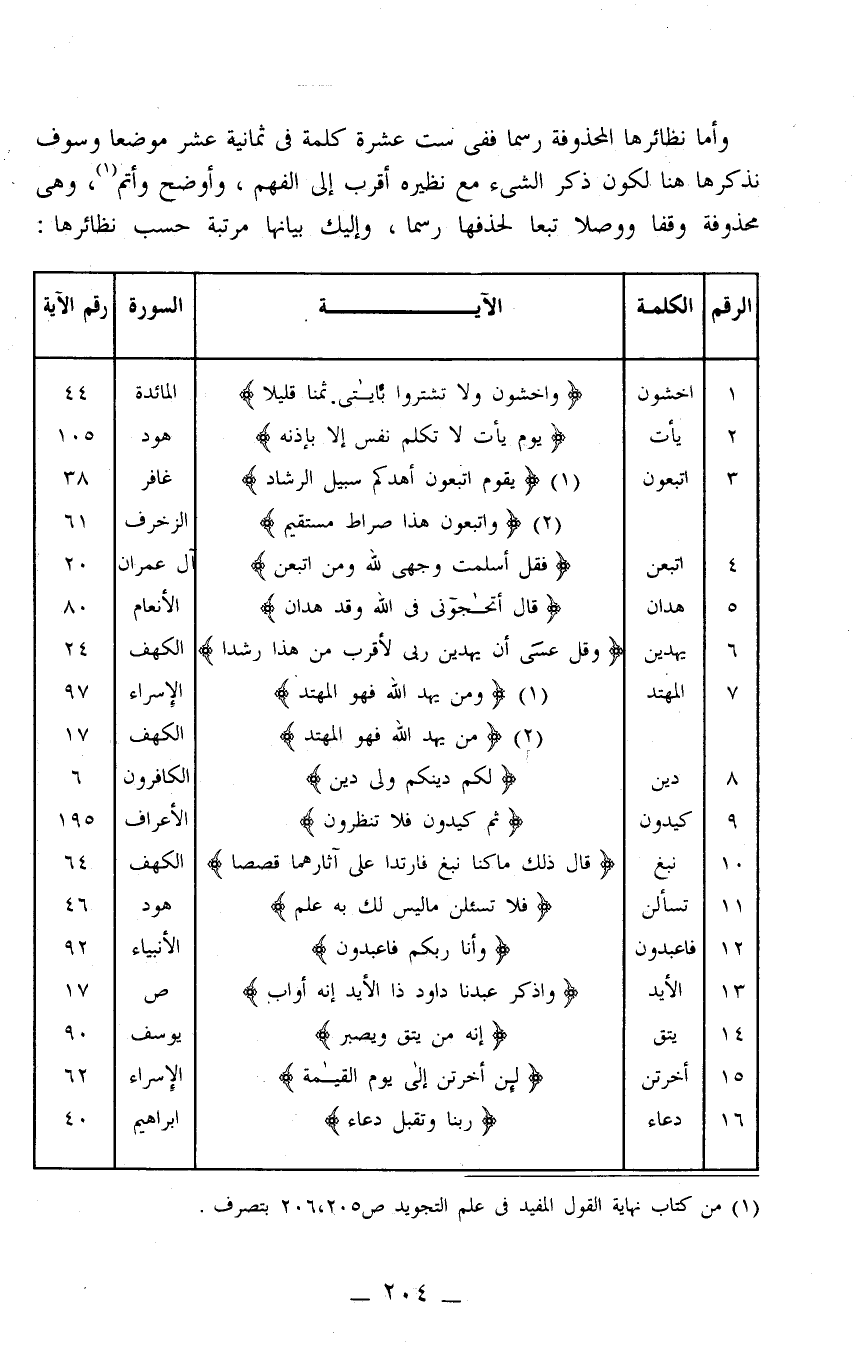 وأما نظائرها المحذوفة رسما ففى ست عشرة كلمة فى ثمانية عشر موضعا وسوف
نذكرها هنا لكون ذكر الشىء مع نظيره أقرب إلى الفهم ، وأوضح وأتم(١)، وهى
محذوفة وقفا ووصلا تبعا لحذفها رسما ، وإليك بيانها مرتبة حسب نظائرها :
الرقم الكلمة الآيـــــــــــــة السورة رقم الآية
١ اخشون ﴿ واخشون ولا تشتروا بٔايـٰتى ثمنا قليلا ﴾ المائدة ٤٤
٢ يأت ﴿ يوم يأت لا تكلم نفس إلا بإذنه ﴾ هود ١٠٥
٣ اتبعون (١) ﴿ يقوم اتبعون أهدكم سبيل الرشاد ﴾ غافر ٣٨
(٢) ﴿ واتبعون هذا صراط مستقيم ﴾ الزخرف ٦١
٤ اتبعن ﴿ فقل أسلمت وجهى لله ومن اتبعن ﴾ آل عمران ٢٠
٥ هدان ﴿ قال أتحـٰجوٓنى فى الله وقد هدان ﴾ الأنعام ٨٠
٦ يهدين ﴿ وقل عسىٰ أن يهدين ربى لأقرب من هذا رشدا ﴾ الكهف ٢٤
٧ المهتد (١) ﴿ ومن يهد الله فهو المهتد ﴾ الإسراء ٩٧
(٢) ﴿ من يهد الله فهو المهتد ﴾ الكهف ١٧
٨ دين ﴿ لكم دينكم ولى دين ﴾ الكافرون ٦
٩ كيدون ﴿ ثم كيدون فلا تنظرون ﴾ الأعراف ١٩٥
١٠ نبغ ﴿ قال ذلك ماكنا نبغ فارتدا على آثارهما قصصا ﴾ الكهف ٦٤
١١ تسألن ﴿ فلا تسئلن ماليس لك به علم ﴾ هود ٤٦
١٢ فاعبدون ﴿ وأنا ربكم فاعبدون ﴾ الأنبياء ٩٢
١٣ الأيد ﴿ واذكر عبدنا داود ذا الأيد إنه أواب ﴾ ص ١٧
١٤ يتق ﴿ إنه من يتق ويصبر ﴾ يوسف ٩٠
١٥ أخرتن ﴿ لئن أخرتن إلىٰ يوم القيـٰمة ﴾ الإسراء ٦٢
١٦ دعاء ﴿ ربنا وتقبل دعاء ﴾ ابراهيم ٤٠
(١) من كتاب نهاية القول المفيد فى علم التجويد ص٢٠٦،٢٠٥ بتصرف .
_ ٢٠٤ _